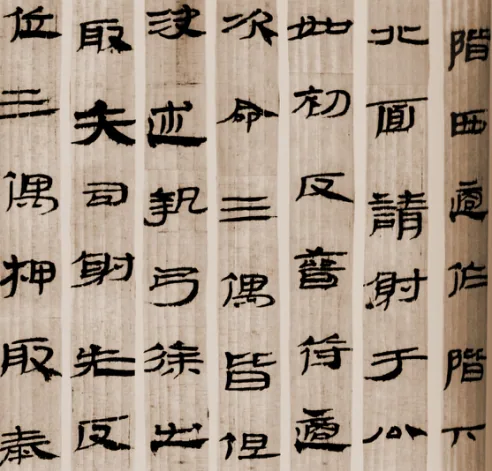 階西適作階下
北面請射于公
如初反晉符適
次命三偶皆但
決述執弓徐出
取矢司射先反
位三偶押取泰